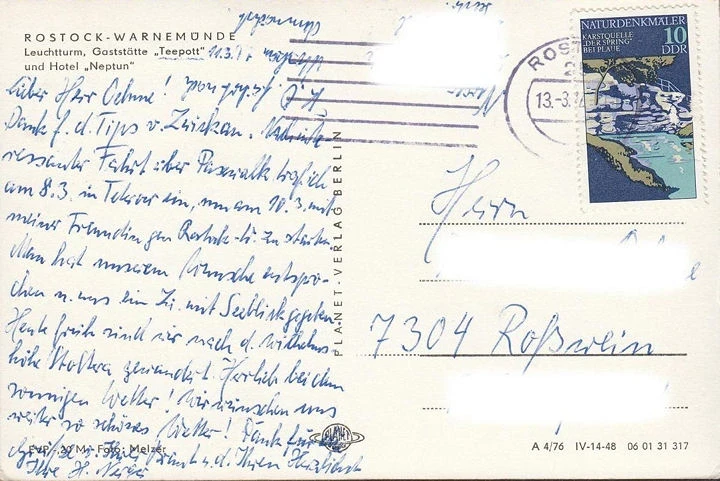 ROSTOCK-WARNEMÜNDE
Leuchtturm, Gaststätte „Teepott"
und Hotel „Neptun"
11.3.
Lieber Herr Oehme!
Dank f. d. Tips v. Zwickau.
ressanter Fahrt über Pasewalk traf ich
am 8.3. in Teterow ein, um am 10.3. mit
meiner Freundin gen Rostock zu starten.
Man hat unserem Wunsche entspro-
chen u. uns ein Zi. mit Seeblick gegeben.
Heute früh sind wir nach d. Wilhelms-
höhe Stoltera gewandert. Herrlich bei dem
sonnigen Wetter! Wir wünschen uns
weiter so schönes Wetter! Dank für
Ihre H.
EVP -,20 M · Foto: Melzer
PLANET-VERLAG BERLIN
PLANET
NATURDENKMÄLER
KARSTQUELLE
„DER SPRING"
BEI PLAUE
10
DDR
ROS
13.-3.
Herrn
7304 Roßwein
A 4/76 IV-14-48 06 01 31 317